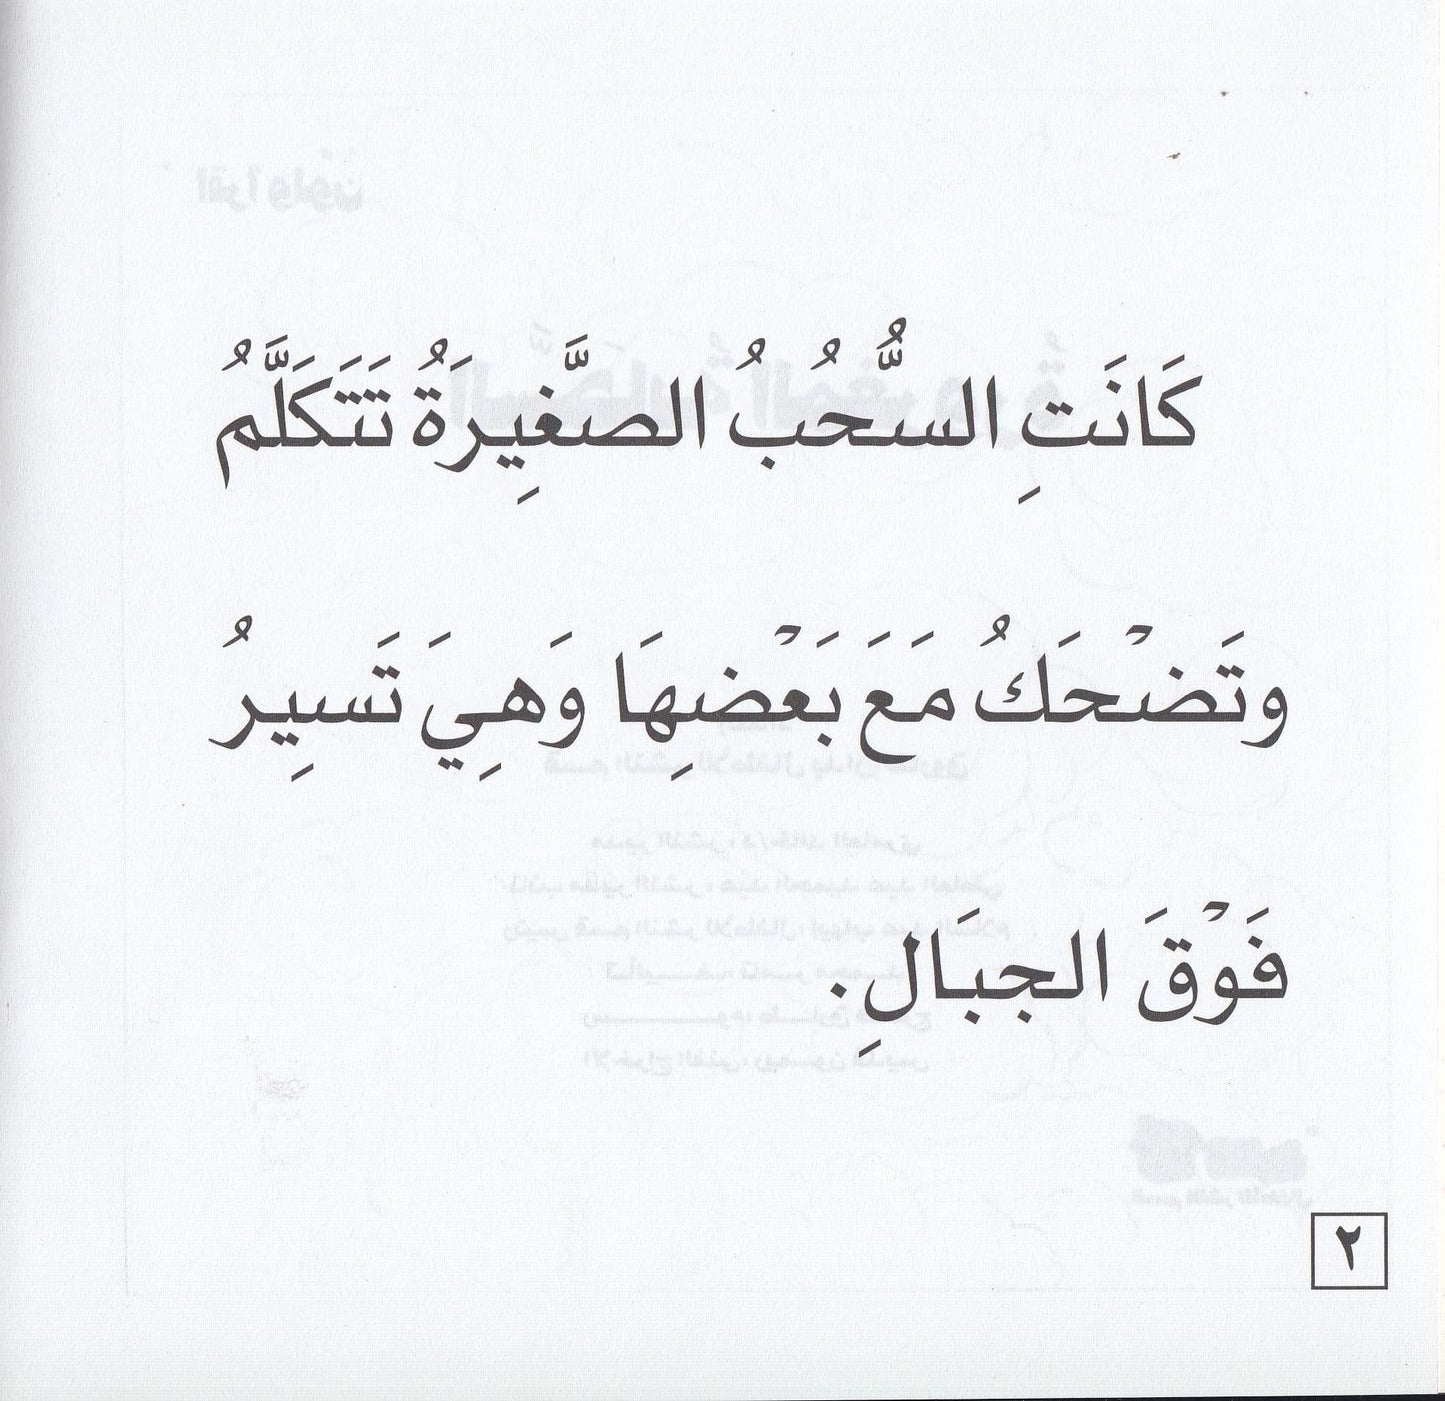 كَانَتِ السُّحُبُ الصَّغِيرَةُ تَتَكَلَّمُ
وتَضْحَكُ مَعَ بَعْضِهَا وَهِيَ تَسِيرُ
فَوْقَ الجِبَالِ.
٢